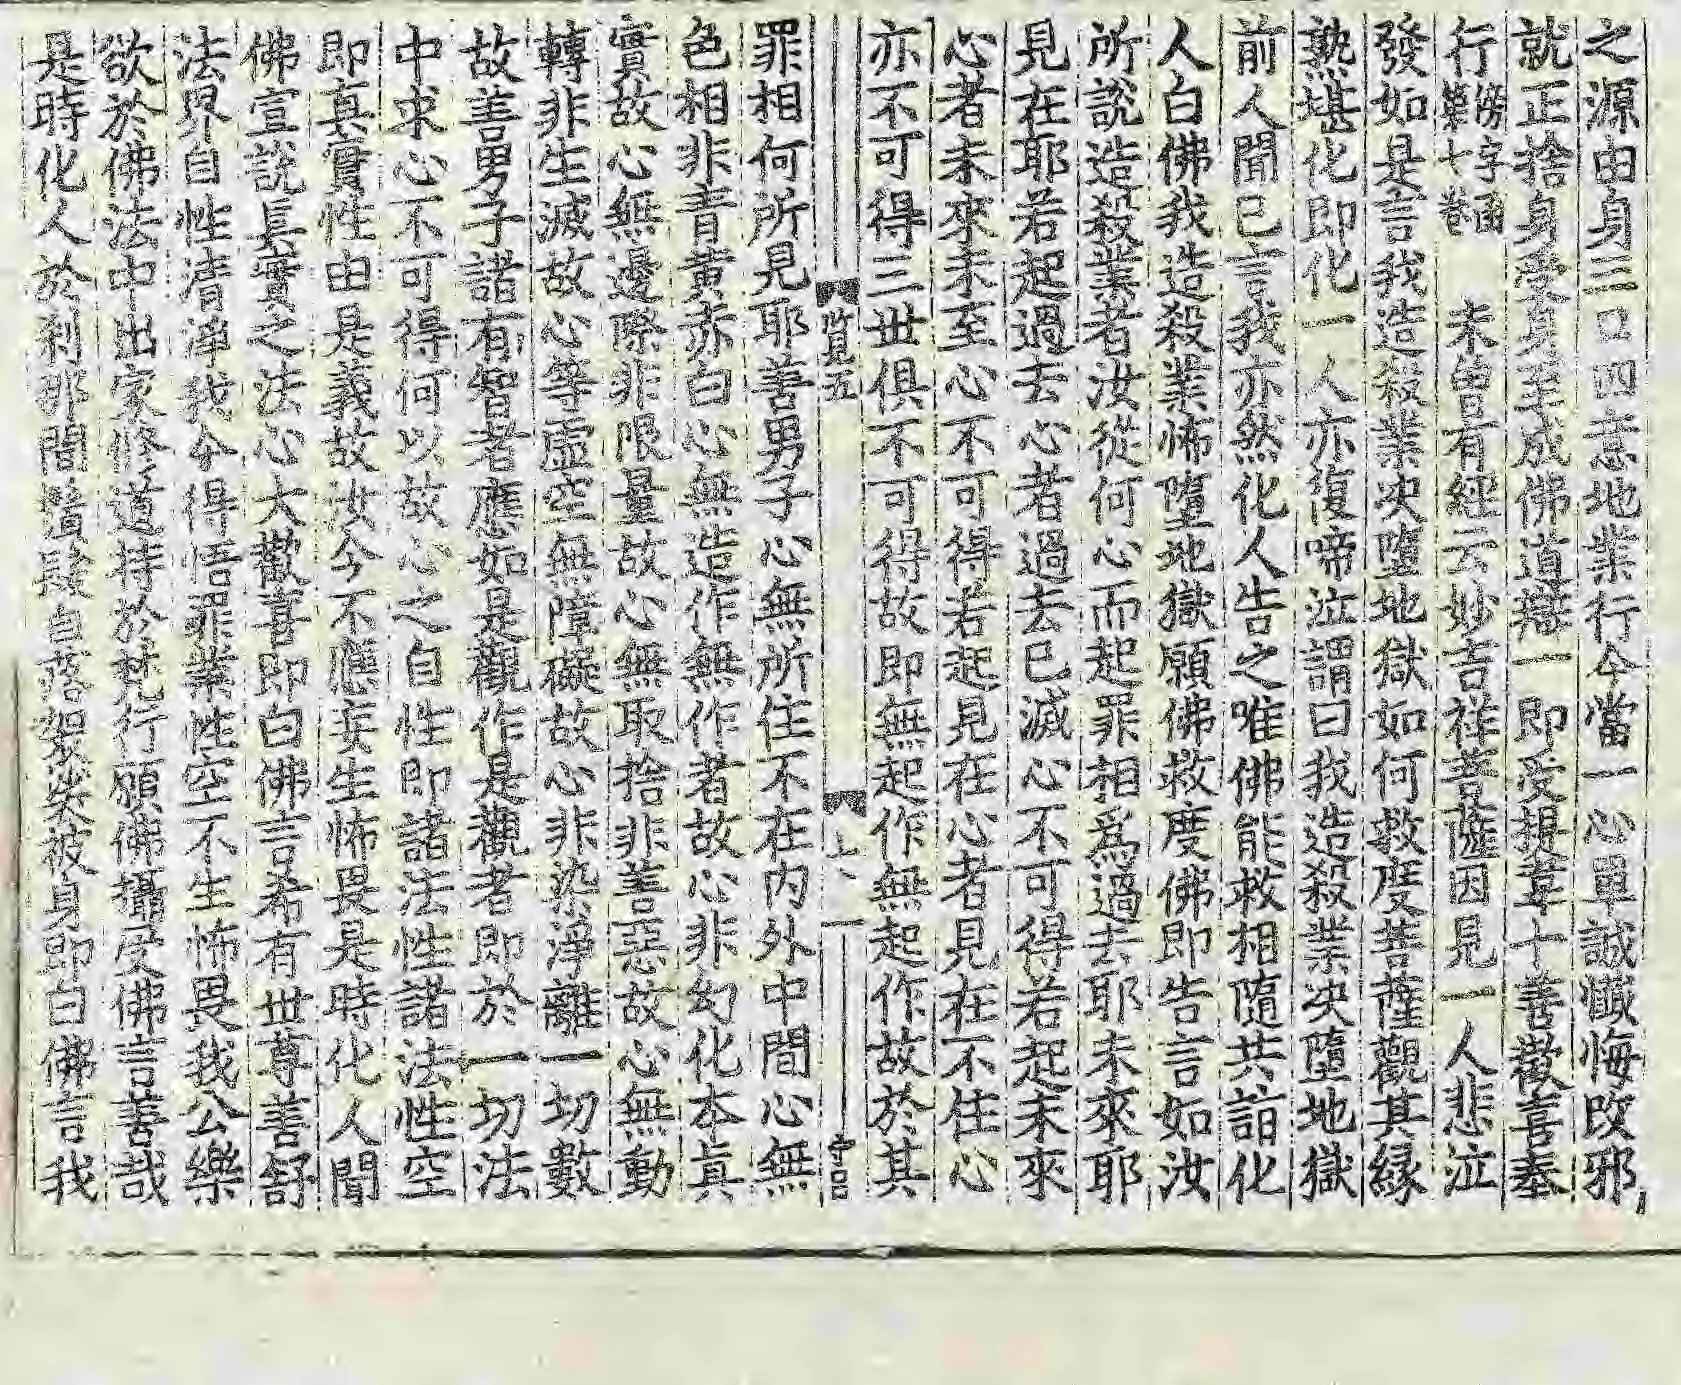 之源由身三口四意地業行今當一心單誠懺悔改邪
就正捨身受身至成佛道辯一即受持葷十善歡喜奉
行第七卷傍字函未曾有經云妙吉祥菩薩因見一人悲泣
發如是言我造殺業決墮地獄如何救度菩薩觀其緣
熟堪化即化一人亦復啼泣謂曰我造殺業決墮地獄
前人聞已言我亦然化人告之唯佛能救相隨共詣化
人白佛我造殺業怖墮地獄願佛救度佛即告言如汝
所說造殺業者汝從何心而起罪相為過去耶未來耶
見在耶若起過去心者過去已滅心不可得若起未來
心者未來未至心不可得若起見在心者見在不住心
亦不可得三世俱不可得故即無起作無起作故於其
覽五 六
罪相何所見耶善男子心無所住不在內外中間心無
色相非青黃赤白心無造作無作者故心非幻化本真
實故心無邊際非限量故心無取捨非善惡故心無動
轉非生滅故心等虛空無障礙故心非染淨離一切數
故善男子諸有智者應如是觀作是觀者即於一切法
中求心不可得何以故心之自性即諸法性諸法性空
即真實性由是義故汝今不應妄生怖畏是時化人聞
佛宣說真實之法心大歡喜即白佛言希有世尊善舒
法界自性清淨我今得悟罪業性空不生怖畏我今樂
欲於佛法中出家修道持於梵行願佛攝受佛言善哉
是時化人於剎那間鬚髮自落袈裟被身即白佛言我